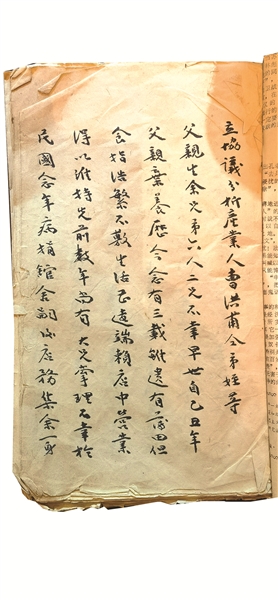 立協議分析產業人曹洪甫仝弟姪等
父親生余兄弟六人二兄不幸早世自己丑年
父親棄養歷今念有三載雖遺有薄田但
食指浩繁不敷生活遠端賴店中營業
得以維持先前數年尚有大兄掌理不幸於
民國念年病捐館舍嗣後店務集余一身